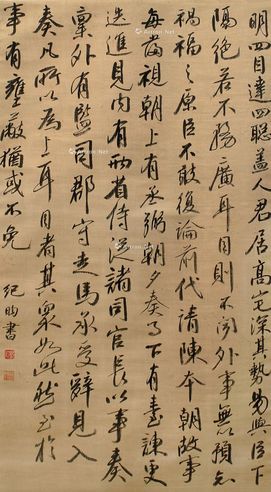 明四目達四聰蓋人君居高宅深其勢易與臣下
隔絕若不務廣耳目則不聞外事無預知
禍福之原臣不敢復論前代請陳本朝故事
每視朝上有丞弼朝夕奏事下有臺諫更
迭進見內有兩省侍從諸司官長以事奏
稟外有監司郡守走馬承受辭見入
奏凡所以為上耳目者其衆如此然至於
事有壅蔽猶或不免 紀昀書